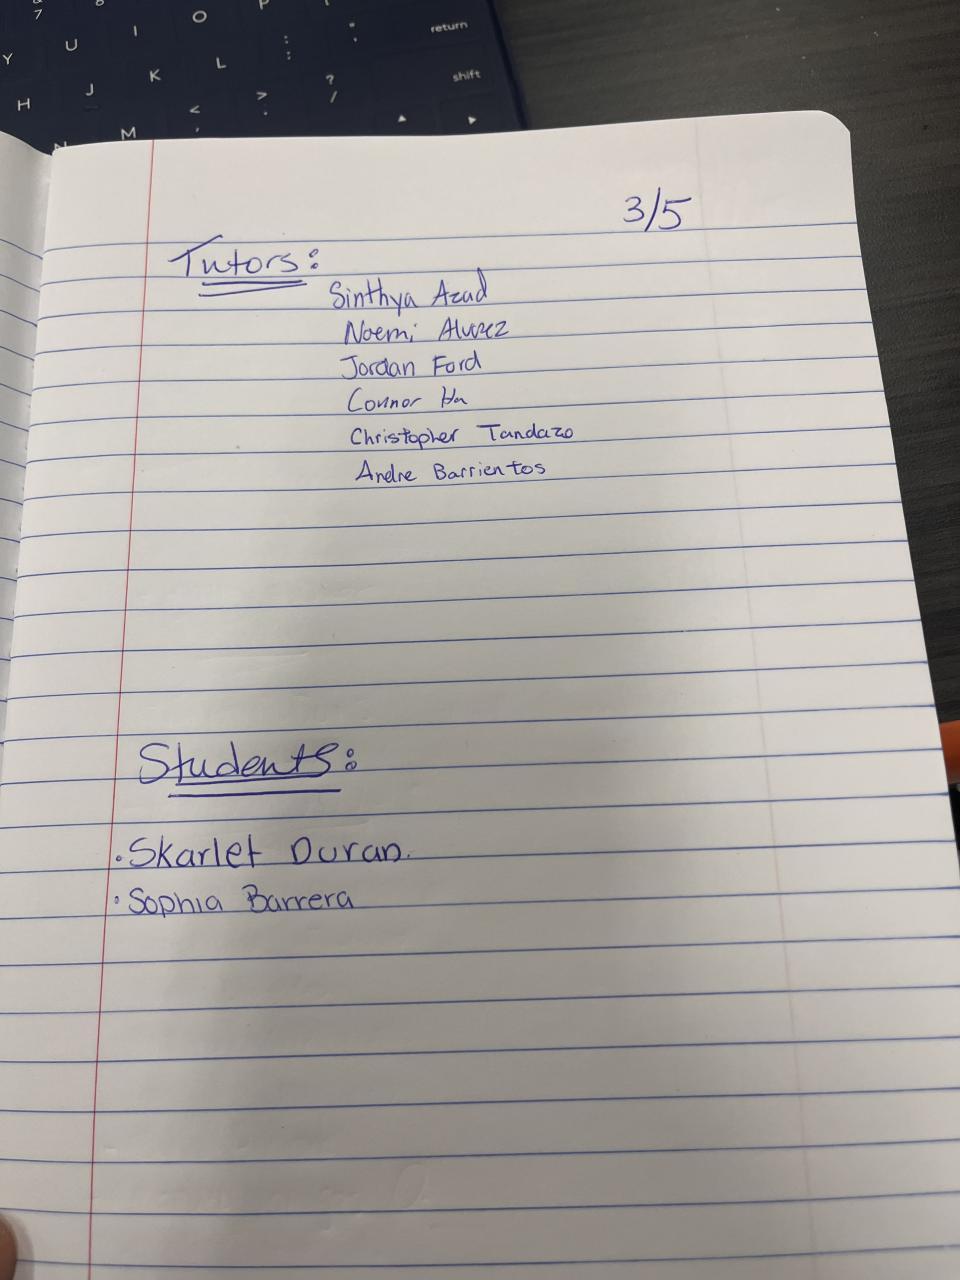 7
Y U I O P
return
H J K L : ;
shift
N M < , > . ? /
3/5
Tutors:
Sinthya Azad
Noemi Alvarez
Jordan Ford
Connor Ha
Christopher Tandazo
Andre Barrientos
Students:
· Skarlet Duran.
· Sophia Barrera